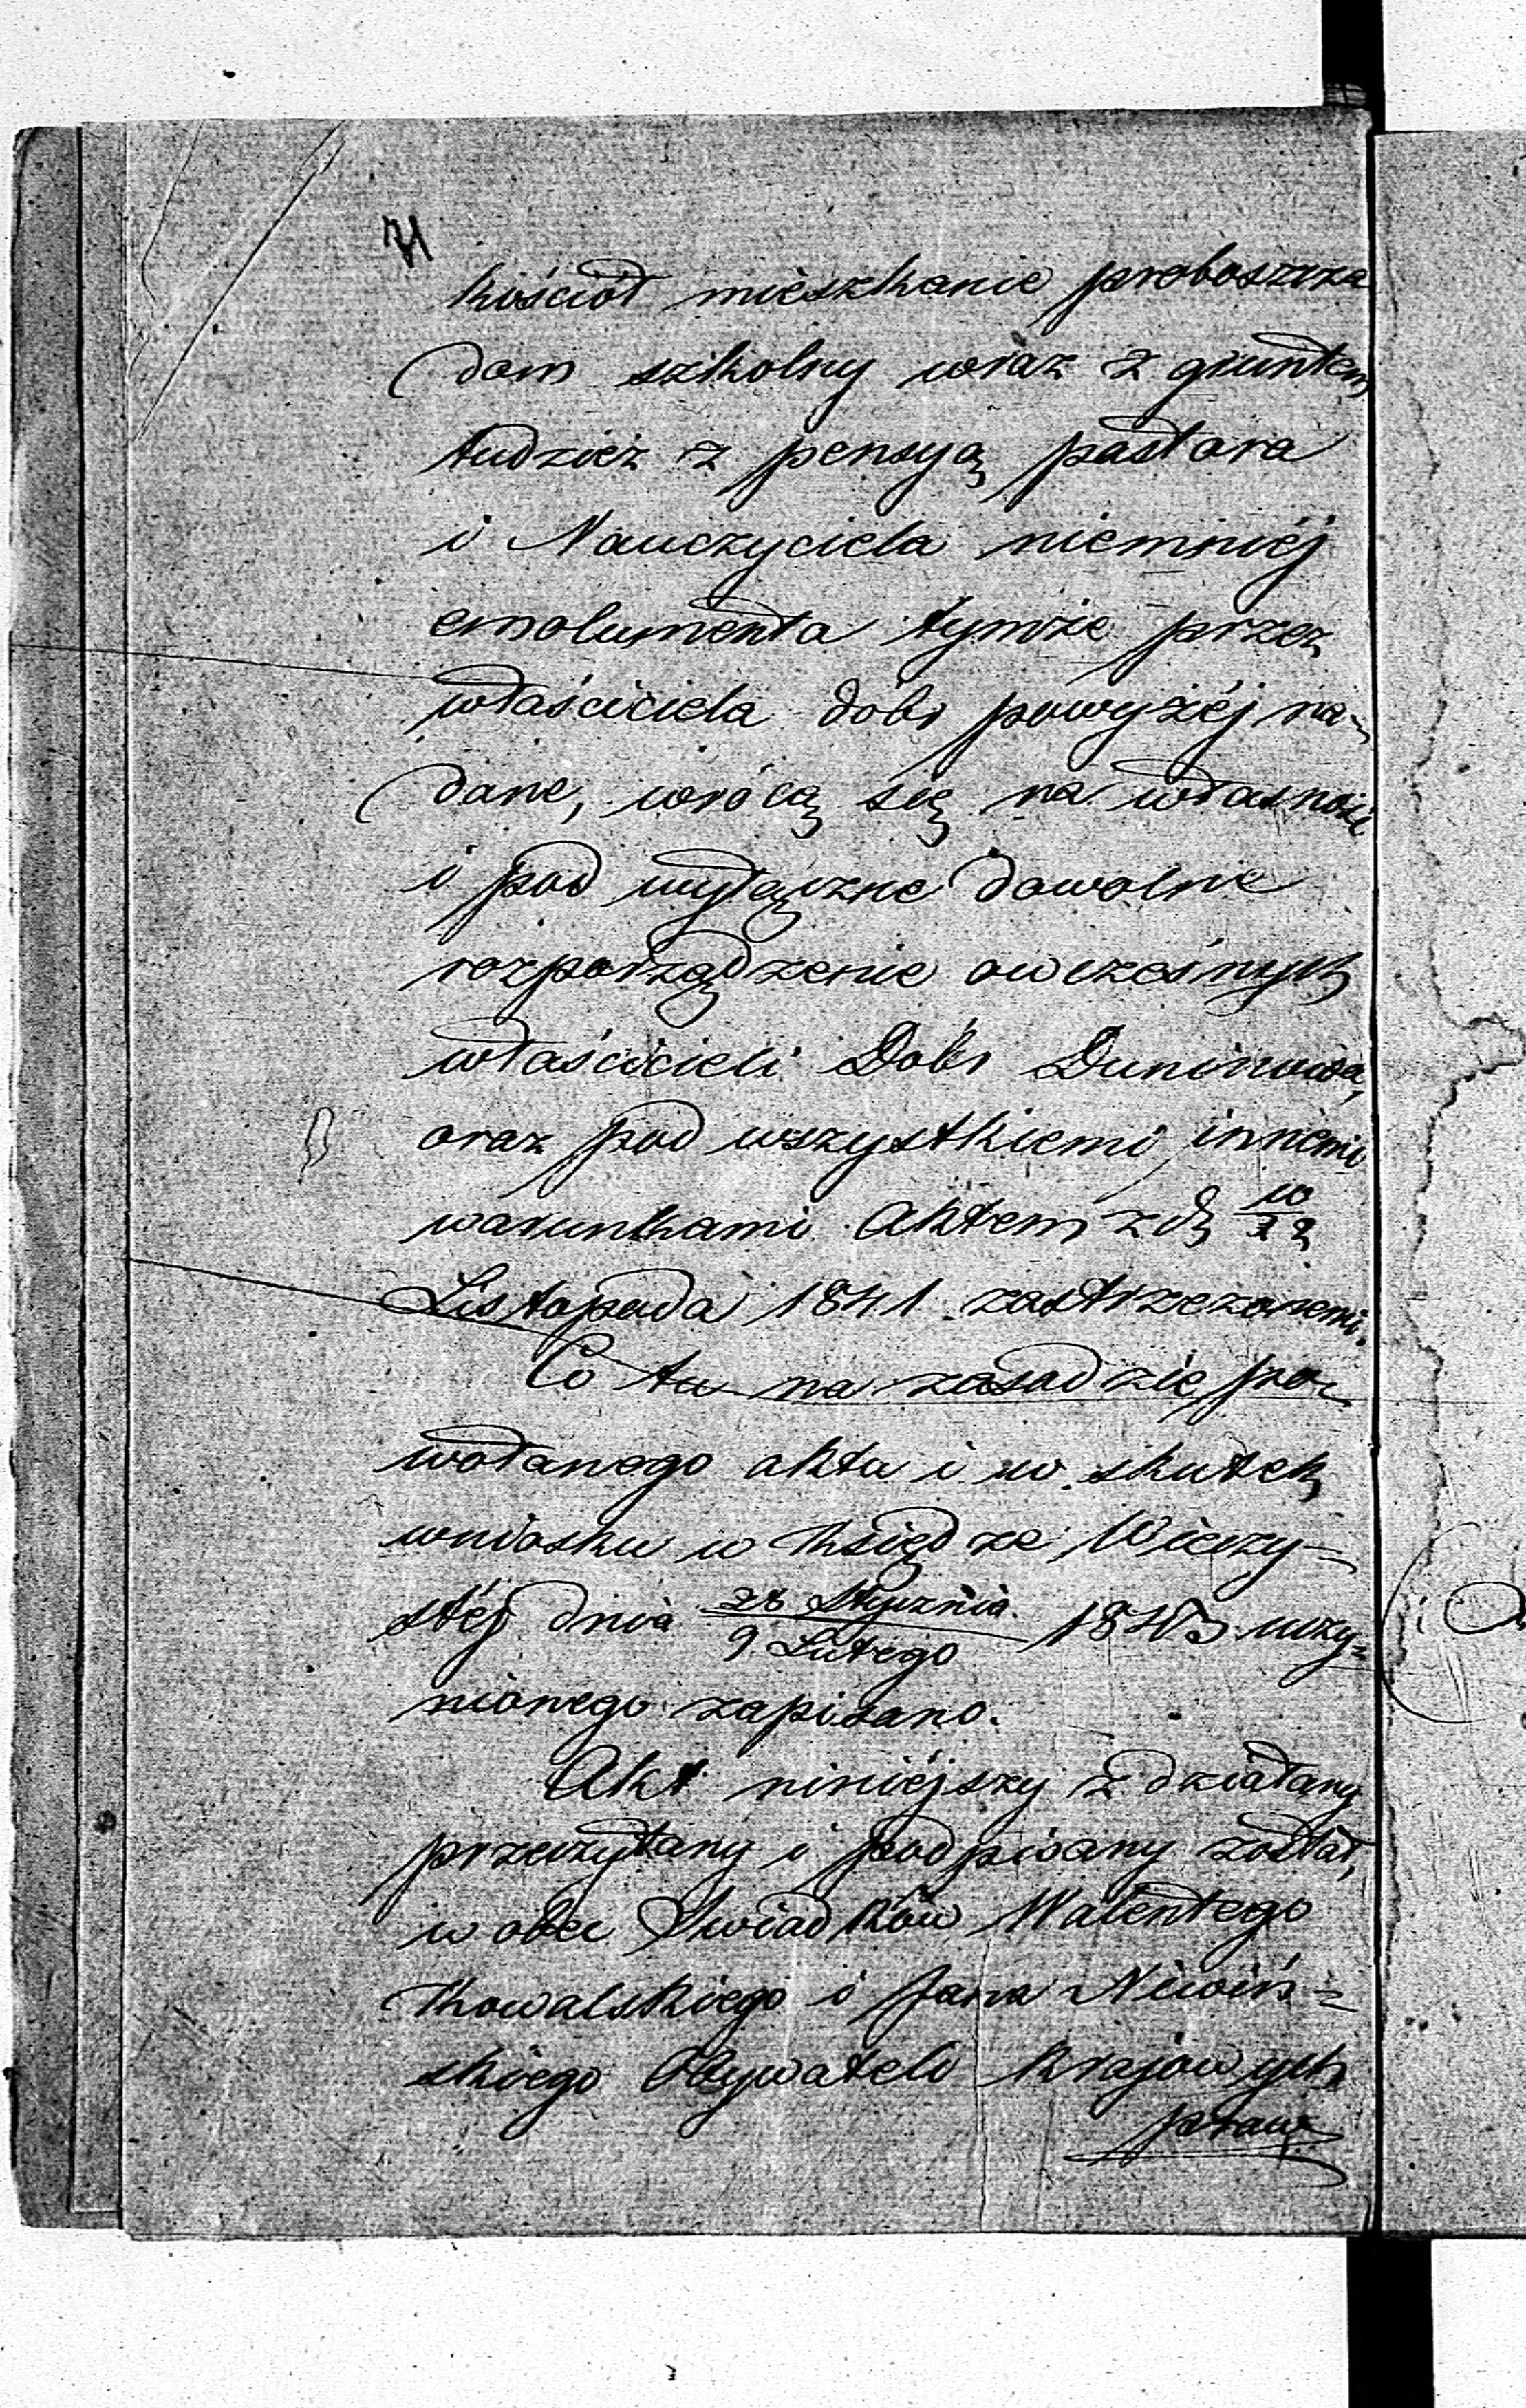 kościół mieszkanie proboszcza
dom szkolny wraz z gruntem
tudzież z pensyą pastora
i Nauczyciela niemniéj
emolumenta tymże przez
właściciela dóbr powyżéj na-
dane, wrócą się na własność
i pod wyłączne dowolne
rozporządzenie owczesnych
właścicieli Dóbr Duninowa,
oraz pod wszystkiemi innemi
warunkami Aktem z d.
Listopada 1841 zastrzeżonemi.
Co tu na zasadzie po-
wołanego aktu i w skutek
wniosku w Księdze Wieczy-
stéj dnia 28 Stycznia / 9 Lutego 1843 uczy-
nionego zapisano.
Akt niniéjszy zdziałany
przeczytany i podpisany został,
w obec Świadków Walentego
Kowalskiego i Jana Niwiń-
skiego Obywateli Krajowych
praw